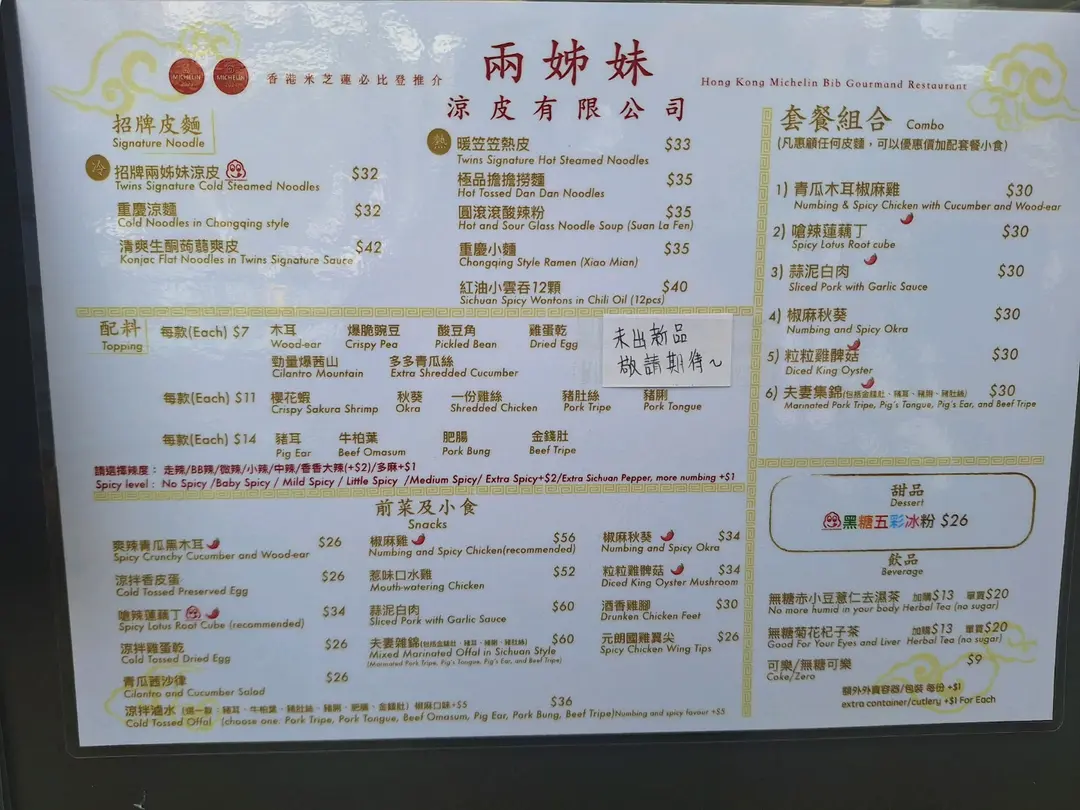 MICHELIN
MICHELIN
香港米芝蓮必比登推介
兩姊妹
涼皮有限公司
Hong Kong Michelin Bib Gourmand Restaurant
招牌皮麵
Signature Noodle
冷
招牌兩姊妹涼皮 $32
Twins Signature Cold Steamed Noodles
重慶涼麵 $32
Cold Noodles in Chongqing style
清爽生酮蒟蒻爽皮 $42
Konjac Flat Noodles in Twins Signature Sauce
熱
暖笠笠熱皮 $33
Twins Signature Hot Steamed Noodles
極品擔擔撈麵 $35
Hot Tossed Dan Dan Noodles
圓滾滾酸辣粉 $35
Hot and Sour Glass Noodle Soup (Suan La Fen)
重慶小麵 $35
Chongqing Style Ramen (Xiao Mian)
紅油小雲吞12顆 $40
Sichuan Spicy Wontons in Chili Oil (12pcs)
套餐組合 Combo
(凡惠顧任何皮麵，可以優惠價加配套餐小食)
1) 青瓜木耳椒麻雞 $30
Numbing & Spicy Chicken with Cucumber and Wood-ear
2) 嗆辣蓮藕丁 $30
Spicy Lotus Root cube
3) 蒜泥白肉 $30
Sliced Pork with Garlic Sauce
4) 椒麻秋葵 $30
Numbing and Spicy Okra
5) 粒粒雞髀菇 $30
Diced King Oyster
6) 夫妻集錦(包括金錢肚、豬耳、豬脷、豬肚絲) $30
Marinated Pork Tripe, Pig's Tongue, Pig's Ear, and Beef Tripe
配料
Topping
每款(Each) $7 木耳 爆脆豌豆 酸豆角 雞蛋乾
Wood-ear Crispy Pea Pickled Bean Dried Egg
勁量爆茜山 多多青瓜絲
Cilantro Mountain Extra Shredded Cucumber
未出新品
敬請期待~
每款(Each) $11 櫻花蝦 秋葵 一份雞絲 豬肚絲 豬脷
Crispy Sakura Shrimp Okra Shredded Chicken Pork Tripe Pork Tongue
每款(Each) $14 豬耳 牛柏葉 肥腸 金錢肚
Pig Ear Beef Omasum Pork Bung Beef Tripe
請選擇辣度： 走辣/BB辣/微辣/小辣/中辣/香香大辣(+$2)/多麻+$1
Spicy level : No Spicy /Baby Spicy / Mild Spicy / Little Spicy /Medium Spicy/ Extra Spicy+$2/Extra Sichuan Pepper, more numbing +$1
前菜及小食
Snacks
爽辣青瓜黑木耳 $26
Spicy Crunchy Cucumber and Wood-ear
涼拌香皮蛋 $26
Cold Tossed Preserved Egg
嗆辣蓮藕丁 $34
Spicy Lotus Root Cube (recommended)
涼拌雞蛋乾 $26
Cold Tossed Dried Egg
青瓜茜沙律 $26
Cilantro and Cucumber Salad
椒麻雞 $56
Numbing and Spicy Chicken(recommended)
惹味口水雞 $52
Mouth-watering Chicken
蒜泥白肉 $60
Sliced Pork with Garlic Sauce
夫妻雜錦(包括金錢肚、豬耳、豬脷、豬肚絲) $60
Mixed Marinated Offal in Sichuan Style
(Marinated Pork Tripe, Pig's Tongue, Pig's Ear, and Beef Tripe)
椒麻秋葵 $34
Numbing and Spicy Okra
粒粒雞髀菇 $34
Diced King Oyster Mushroom
酒香雞腳 $30
Drunken Chicken Feet
元朗國雞翼尖 $26
Spicy Chicken Wing Tips
涼拌滷水 (選一款：豬耳、牛柏葉、豬肚絲、豬脷、肥腸、金錢肚) 椒麻口味+$5 $36
Cold Tossed Offal (choose one: Pork Tripe, Pork Tongue, Beef Omasum, Pig Ear, Pork Bung, Beef Tripe)Numbing and spicy favour +$5
甜品
Dessert
黑糖五彩冰粉 $26
飲品
Beverage
無糖赤小豆薏仁去濕茶 加購$13 單買$20
No more humid in your body Herbal Tea (no sugar)
無糖菊花杞子茶 加購$13 單買$20
Good For Your Eyes and Liver Herbal Tea (no sugar)
可樂/無糖可樂 $9
Coke/Zero
額外外賣容器/包裝 每份 +$1
extra container/cutlery +$1 For Each